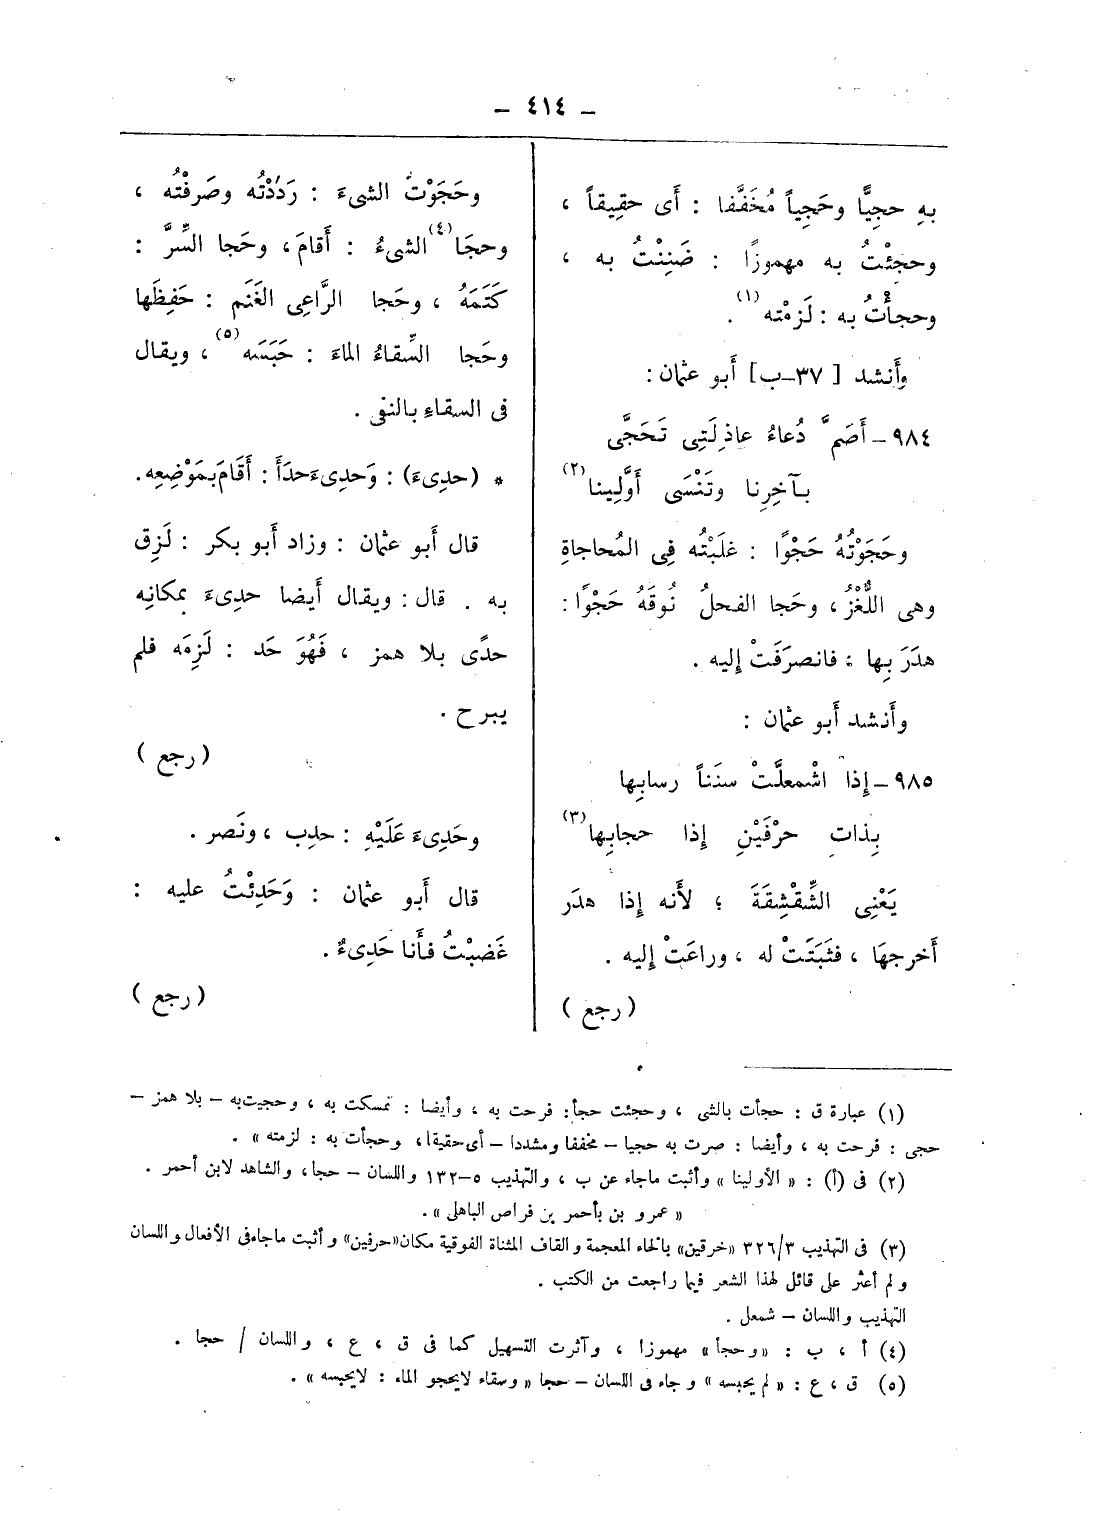 – ٤١٤ –
بِهِ حجِيًّا وحَجِياً مُخَفَّفا : أَى حقِيقاً ،
وحجِئْتُ به مهموزًا : ضَنِنْتُ به ،
وحجأْتُ به : لَزِمْته (١) .
وأَنشد [ ٣٧–ب] أَبو عثمان :
٩٨٤ – أَصَمَّ دُعاءُ عاذِلَتِى تَحَجَّى
بآخِرِنا وتَنْسَى أَوَّلِينا (٢)
وحَجَوْتُهُ حَجْوًا : غلَبْتُه فِى المُحاجاةِ
وهى اللُّغْزُ ، وحَجا الفحلُ نُوقَهُ حَجْوًا :
هدَرَ بِها ؛ فانصرَفَتْ إِليه .
وأَنشد أَبو عثمان :
٩٨٥ – إِذا اشْمعلَّتْ سنَناً رسابِها
بِذاتِ حرْفَيْنِ إِذا حجابِها (٣)
يَعْنِى الشِّقْشِقَةَ ؛ لأَنه إِذا هدَر
أَخرجهَا ، فثَبَتَتْ له ، وراعَتْ إِليه .
( رجع )
وحَجَوْتُ الشىءَ : رَدَدْتُه وصَرفْتُه ،
وحجَا (٤) الشىءُ : أَقامَ ، وحَجا السِّرَّ :
كَتَمَهُ ، وحَجا الرَّاعِى الغَنَم : حَفِظَها
وحَجا السِّقاءُ الماءَ : حَبَسَه (٥) ، ويقال
فى السقاءِ بالنفى .
* (حدِىءَ) : وَحدِىءَ حدَأً : أَقَامَ بمَوْضِعِه .
قال أَبو عثمان : وزاد أَبو بكر : لَزِق
به . قال : ويقال أَيضا حدِىءَ بمكانِه
حدًى بلا همز ، فَهُوَ حَد : لَزِمَه فلم
يبرح .
( رجع )
وحَدِىءَ عَلَيْهِ : حدِب ، ونَصر .
قال أَبو عثمان : وَحَدِئْتُ عليه :
غَضبْتُ فأَنا حَدِىءٌ .
( رجع )
(١) عبارة ق : حجأت بالشى ، وحجئت حجأ : فرحت به ، وأيضا : تمسكت به ، وحجيت به – بلا همز –
حجى : فرحت به ، وأيضا : صرت به حجيا – مخففا ومشددا – أى حقيقا ، وحجأت به : لزمته » .
(٢) فى (أ) : « الأولينا » وأثبت ماجاء عن ب ، والتهذيب ٥–١٣٢ واللسان – حجا ، والشاهد لابن أحمر .
« عمرو بن بأحمر بن فراص الباهلى » .
(٣) فى التهذيب ٣٢٦/٣ «خرقين» بالخاء المعجمة والقاف المثناة الفوقية مكان «حرفين» وأثبت ماجاء فى الأفعال واللسان
ولم أعثر على قائل لهذا الشعر فيما راجعت من الكتب .
التهذيب واللسان – شمعل .
(٤) أ ، ب : «وحجأ» مهموزا ، وآثرت التسهيل كما فى ق ، ع ، واللسان / حجا .
(٥) ق ، ع : « لم يحبسه » وجاء فى اللسان – حجا « وسقاء لايحجو الماء : لايحبسه » .